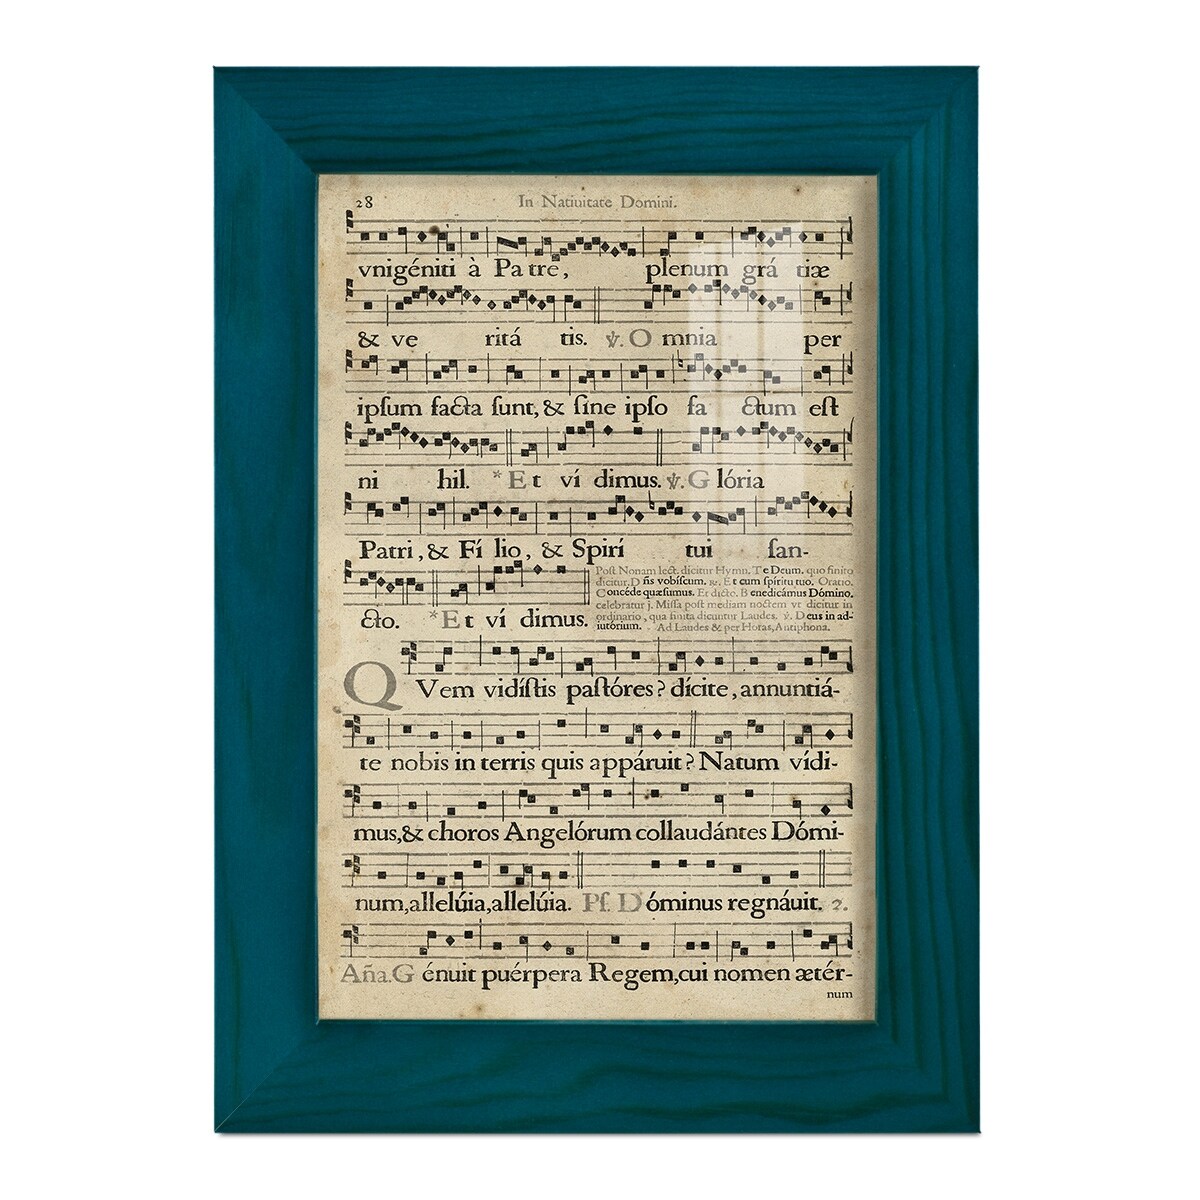 28 In Natiuitate Domini.
vnigéniti à Pa tre, plenum grá tiæ
& ve ritá tis. ℣. O mnia per
ipſum facta ſunt, & ſine ipſo fa ctum eſt
ni hil. * E t ví dimus. ℣. G lória
Patri, & Fí lio, & Spirí tui ſan-
cto. * E t ví dimus.
Poſt Nonam lect. dicitur Hymn. T e Deum. quo finito
dicitur. D ñs vobiſcum. ℟. E t cum ſpíritu tuo. Oratio.
C oncéde quæſumus. Et dicto. B enedicámus Dómino.
celebratur j. Miſſa poſt mediam noctem vt dicitur in
ordinario, qua finita dicuntur Laudes. ℣. D eus in ad-
iutórium. Ad Laudes & per Horas, Antiphona.
Q Vem vidíſtis paſtóres? dícite, annuntiá-
te nobis in terris quis appáruit? Natum vídi-
mus, & choros Angelórum collaudántes Dómi-
num, allelúia, allelúia. Pſ. D óminus regnáuit. 2.
Aña. G énuit puérpera Regem, cui nomen ætér-
num